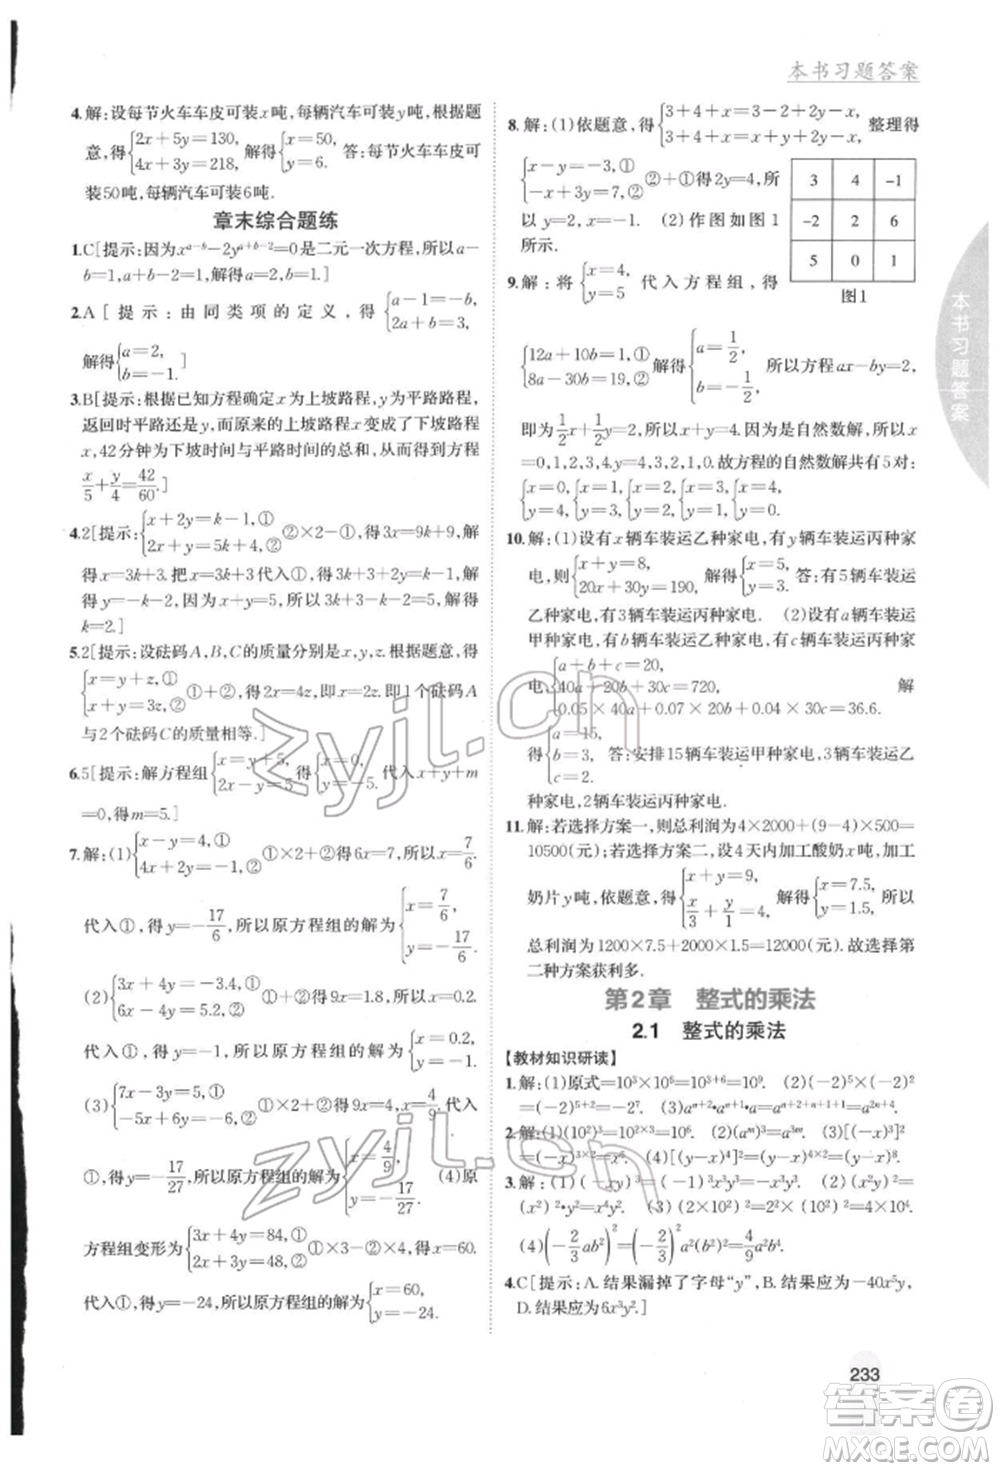 本书习题答案
4.解:设每节火车车皮可装x吨,每辆汽车可装y吨.根据题
意,得{2x+5y=130, 4x+3y=218, 解得{x=50, y=6. 答:每节火车车皮可
装50吨,每辆汽车可装6吨.
章末综合题练
1.C[提示:因为x^{a-b}-2y^{a+b-2}=0是二元一次方程,所以a-
b=1,a+b-2=1,解得a=2,b=1.]
2.A[提示:由同类项的定义,得{a-1=-b, 2a+b=3,
解得{a=2, b=-1.]
3.B[提示:根据已知方程确定x为上坡路程,y为平路路程,
返回时平路还是y,而原来的上坡路程x变成了下坡路程
x,42分钟为下坡时间与平路时间的总和,从而列出方程
x/5+y/4=42/60.]
4.2[提示:{x+2y=k-1,① 2x+y=5k+4,② ②×2-①,得3x=9k+9,解
得x=3k+3.把x=3k+3代入①,得y=-k-2.因为x+y=5,
所以3k+3-k-2=5,即2k=4,解得
k=2.]
5.2[提示:设砝码A,B,C的质量分别是x,y,z.根据题意,得
{x=y+z,① x+y=3z,② ①+②,得2x=4z,即x=2z.即1个砝码A
与2个砝码C的质量相等.]
6.5[提示:解方程组{x+y=5, 2x-y=-5,得{x=0, y=5.代入x+y+m
=10,得m=5.]
7.解:(1){x-y=4,① 4x+2y=-1.② ①×2+②,得6x=7,所以x=7/6.
代入①,得y=-17/6,所以原方程组的解为{x=7/6, y=-17/6.
(2){3x+4y=-3.4,① 6x-4y=5.2,② ①+②,得9x=1.8,所以x=0.2.
代入①,得y=-1,所以原方程组的解为{x=0.2, y=-1.
(3){7x-3y=5,① -5x+6y=-6,② ①×2+②,得9x=4,所以x=4/9.代入
①,得y=-17/27,所以原方程组的解为{x=4/9, y=-17/27. (4)原
方程组变形为{3x+4y=84,① 2x+3y=48,② ①×3-②×4,得x=60.
代入①,得y=-24,所以原方程组的解为{x=60, y=-24.
8.解:(1)依题意,得{3+4+x=3-2+2y-x, 3+4+x=x+y+2y-x, 整理得
{x-y=-3,① -x+3y=7,② ②+①得2y=4,所
以y=2,x=-1. (2)作图如图1
所示.
3 4 -1
-2 2 6
5 0 1
图1
9.解:将{x=4, y=5 代入方程组,得
{12a+10b=1, 8a-30b=19,解得{a=1/2, b=-1/2, 所以方程ax-by=2,
即为1/2x+1/2y=2,所以x+y=4.因为是自然数解,所以x
=0,1,2,3,4,y=4,3,2,1,0.故方程的自然数解共有5对:
{x=0, y=4, {x=1, y=3, {x=2, y=2, {x=3, y=1, {x=4, y=0.
10.解:(1)设有x辆车装运乙种家电,有y辆车装运丙种家
电,则{x+y=8, 20x+30y=190,解得{x=5, y=3. 答:有5辆车装运
乙种家电,有3辆车装运丙种家电. (2)设有a辆车装运
甲种家电,有b辆车装运乙种家电,有c辆车装运丙种家
电,{a+b+c=20, 40a+20b+30c=720, 0.05×40a+0.07×20b+0.04×30c=36.6. 解
得{a=15, b=3, c=2. 答:安排15辆车装运甲种家电,3辆车装运乙
种家电,2辆车装运丙种家电.
11.解:若选择方案一,则总利润为4×2000+(9-4)×500=
10500(元);若选择方案二,设4天内加工酸奶x吨,加工
奶片y吨,依题意,得{x+y=9, x/3+y/1=4. 解得{x=7.5, y=1.5, 所以
总利润为1200×7.5+2000×1.5=12000(元).故选择第
二种方案获利多.
第2章 整式的乘法
2.1 整式的乘法
【教材知识研读】
1.解:(1)原式=10³×10⁶=10³⁺⁶=10⁹. (2)(-2)⁵×(-2)²
=(-2)⁵⁺²=(-2)⁷=-2⁷. (3)aⁿ⁺²·aⁿ⁺¹·aⁿ·a=a⁴ⁿ⁺⁴.
2.解:(1)(10²)³=10²ˣ³=10⁶. (2)(aᵐ)³=a³ᵐ. (3)[(-x)³]²
=(-x)³ˣ²=x⁶. (4)[(-x)²]³=x²ˣ³=x⁶.
3.解:(1)(-xy)³=(-x)³y³=-x³y³. (2)(x²y)²
=(x²)²·y²=x⁴y². (3)(2×10²)²=2²×(10²)²=4×10⁴.
(4)(-2/3ab²)²=(-2/3)²a²(b²)²=4/9a²b⁴.
4.C[提示:A.结果漏掉了字母“y”,B.结果应为-40x⁵y,
D.结果应为6x³y².]
本书习题答案
233
zyjl.cn
zyjl.cn
答案圈
MXQE.COM